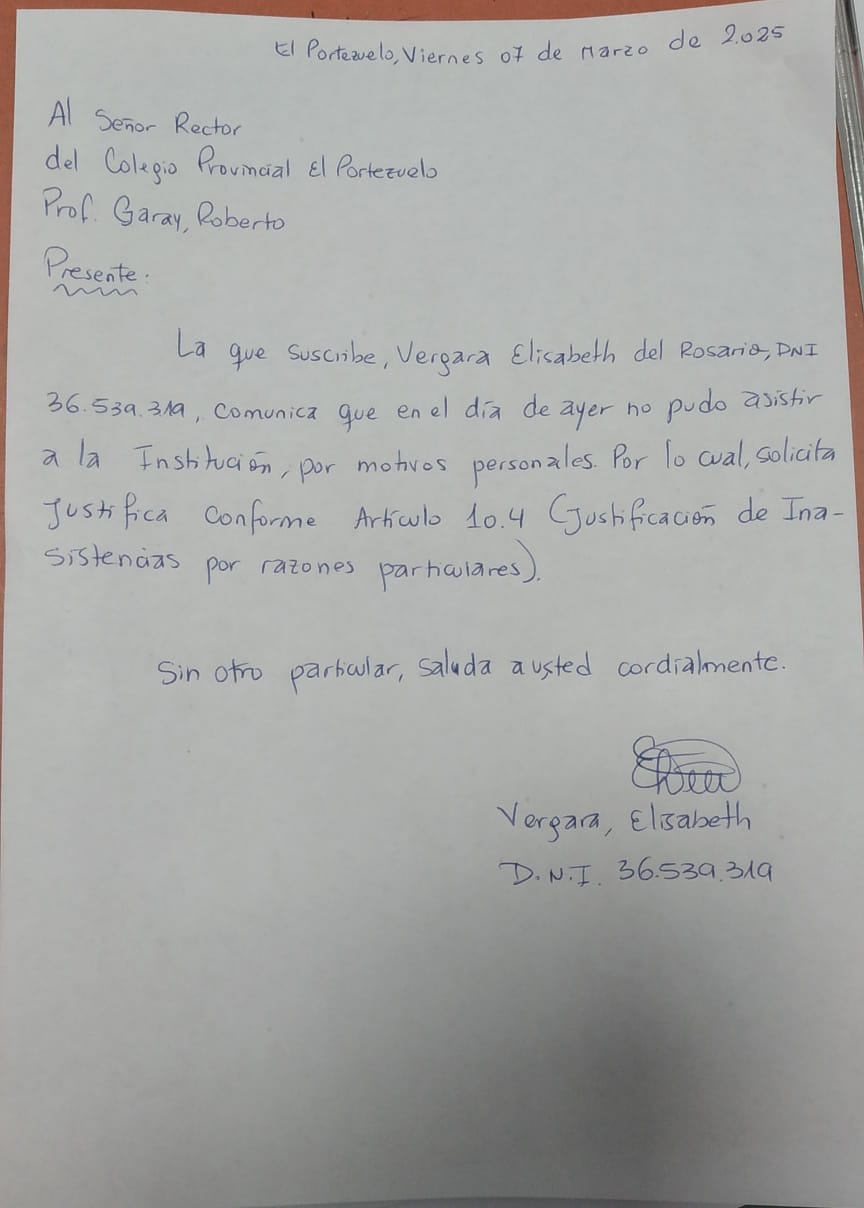 El Portezuelo, Viernes 07 de Marzo de 2.025
Al Señor Rector
del Colegio Provincial El Portezuelo
Prof. Garay, Roberto
Presente:
La que suscribe, Vergara Elisabeth del Rosario, DNI
36.539.319, comunica que en el día de ayer no pudo asistir
a la Institución, por motivos personales. Por lo cual, solicita
justifica conforme Artículo 10.4 (Justificación de Ina-
sistencias por razones particulares).
Sin otro particular, saluda a usted cordialmente.
Vergara, Elisabeth
D.N.I. 36.539.319